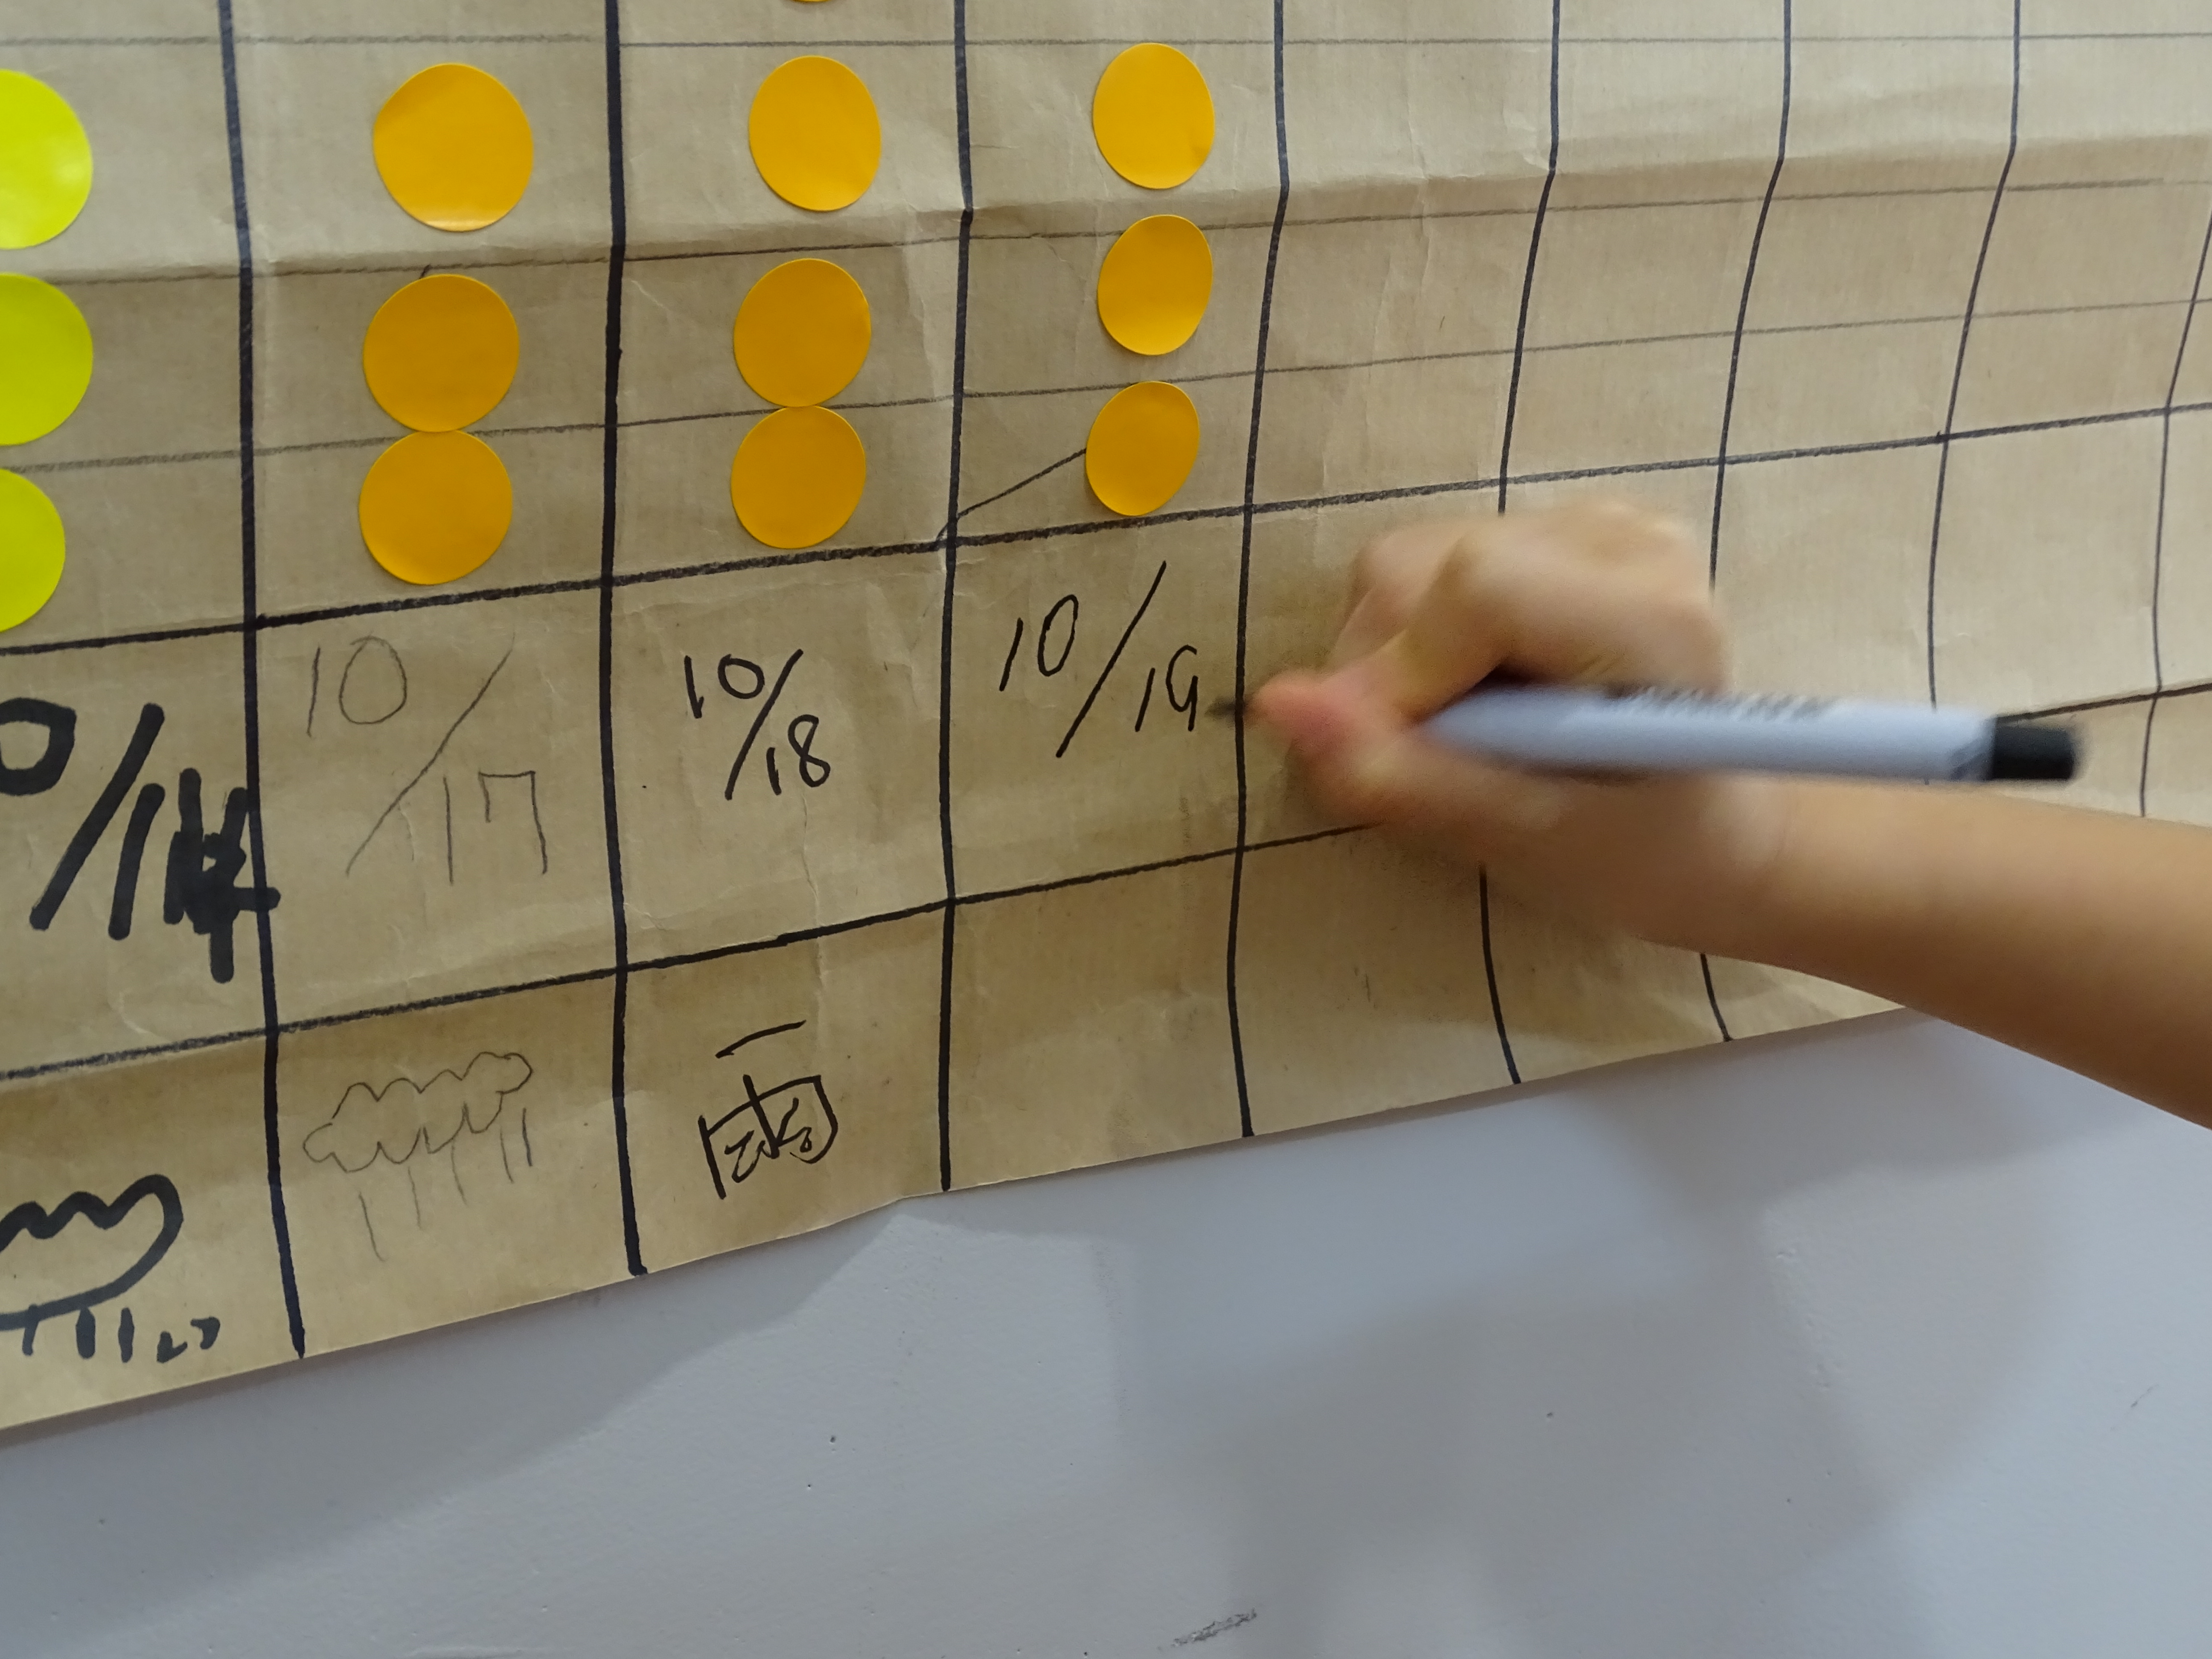 10/17
10/18
10/19
雨